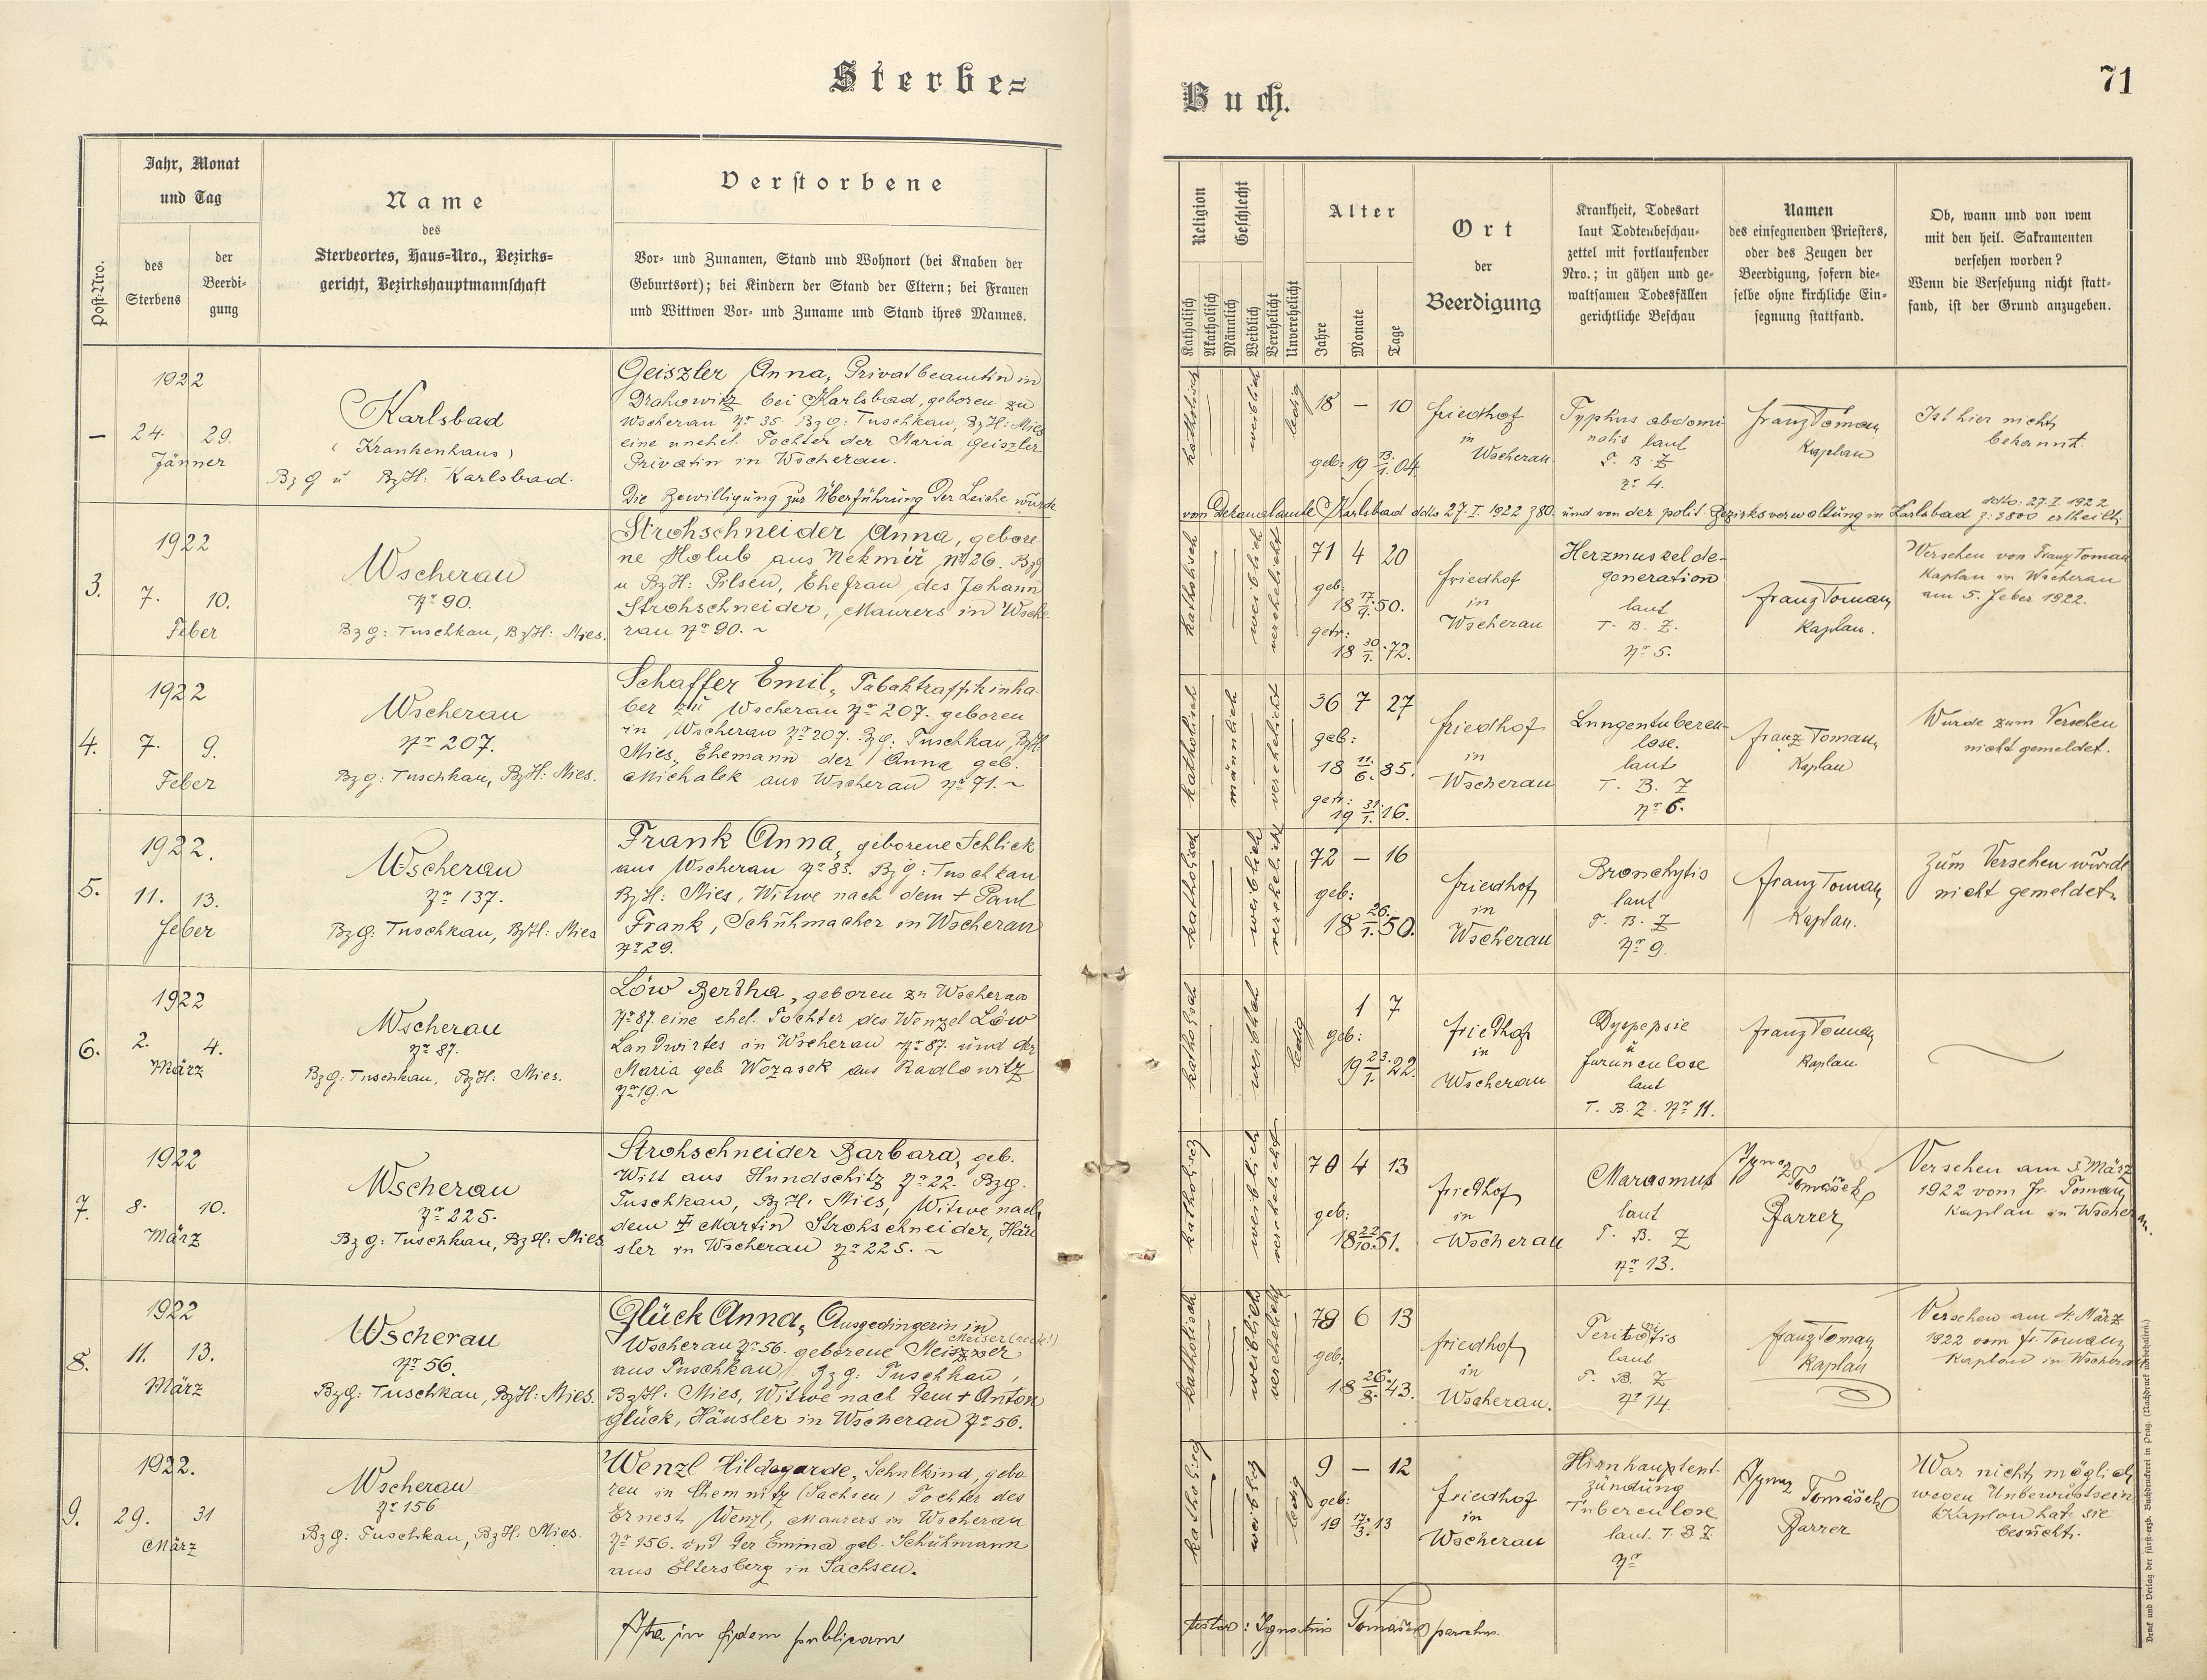 Sterbe=
Buch.
71
Post-Nro.
Jahr, Monat
und Tag
des
Sterbens
der
Beerdi-
gung
Name
des
Sterbeortes, Haus=Nro., Bezirks=
gericht, Bezirkshauptmannschaft
Verstorbene
Vor- und Zunamen, Stand und Wohnort (bei Knaben der
Geburtsort); bei Kindern der Stand der Eltern; bei Frauen
und Wittwen Vor- und Zuname und Stand ihres Mannes.
Religion
Katholisch
Akatholisch
Geschlecht
Männlich
Weiblich
Verehelicht
Unverehelicht
Alter
Jahre
Monate
Tage
Ort
der
Beerdigung
Krankheit, Todesart
laut Todtenbeschau-
zettel mit fortlaufender
Nro.; in gähen und ge-
waltsamen Todesfällen
gerichtliche Beschau
Namen
des einsegnenden Priesters,
oder des Zeugen der
Beerdigung, sofern die-
selbe ohne kirchliche Ein-
segnung stattfand.
Ob, wann und von wem
mit den heil. Sakramenten
versehen worden?
Wenn die Versehung nicht statt-
fand, ist der Grund anzugeben.
1922
– 24. 29.
Jänner
Karlsbad
(Krankenhaus)
Bz G u BzH: Karlsbad.
Geiszler Anna, Privatbeamtin in
Drahowitz bei Karlsbad, geboren zu
Wscherau Nr 35. BzG: Tuschkau, BzH: Mies
eine unehel. Tochter der Maria Geiszler
Privatin in Wscherau.
Die Bewilligung zur Überführung der Leiche wurde
katholisch
weiblich
ledig
18 – 10
geb: 19 13./1. 04.
Friedhof
in
Wscherau
Typhus abdomi
nalis laut
T. B. Z
Nr 4.
Franz Toman
Kaplan
Ist hier nicht
bekannt.
vom Dekanalamte Karlsbad ddto 27. I. 1922 z 80 und von der polit. Bezirksverwaltung in Karlsbad ddto: 27. I. 1922 z: 3800 ertheilt.
1922
3. 7. 10.
Feber
Wscherau
Nr 90.
BzG: Tuschkau, BzH: Mies.
Strohschneider Anna, gebore
ne Holub aus Nekmíř Nr 26. BzG
u BzH: Pilsen, Ehefrau des Johann
Strohschneider, Maurers in Wsche
rau Nr 90. ~
katholisch
weiblich
verehelicht
71 4 20
geb:
18 17./9. 50.
getr:
18 30/1. 72.
Friedhof
in
Wscherau
Herzmuskelde-
generation
laut
T. B. Z.
Nr 5.
Franz Toman
Kaplan.
Versehen von Franz Toman
Kaplan in Wscherau
am 5. Feber 1922.
1922
4. 7. 9.
Feber
Wscherau
Nr 207.
BzG: Tuschkau, BzH: Mies.
Schaffer Emil, Tabaktraffikinha-
ber zu Wscherau Nr 207. geboren
in Wscherau Nr 207. BzG: Tuschkau, BzH:
Mies, Ehemann der Anna geb.
Michalek aus Wscherau Nr 71. ~
katholisch
männlich
verehelicht
36 7 27
geb:
18 11./6. 85.
getr:
19 31./1. 16.
Friedhof
in
Wscherau
Lungentubercu-
lose.
laut
T. B. Z
Nr 6.
Franz Toman,
Kaplan
Wurde zum Versehen
nicht gemeldet.
1922.
5. 11. 13.
Feber
Wscherau
Nr 137.
BzG: Tuschkau, BzH: Mies
Frank Anna, geborene Schlick
aus Wscherau Nr 83. BzG: Tuschkau
BzH: Mies, Witwe nach dem + Paul
Frank, Schuhmacher in Wscherau
Nr 29.
katholisch
weiblich
verehelicht
72 – 16
geb:
18 26./1. 50.
Friedhof
in
Wscherau
Bronchytis
laut
T. B. Z
Nr 9.
Franz Toman
Kaplan.
Zum Versehen wurde
nicht gemeldet.
1922
6. 2. 4.
März
Wscherau
Nr 87.
BzG: Tuschkau, BzH: Mies.
Löw Bertha, geboren zu Wscherau
Nr 87. eine ehel. Tochter des Wenzel Löw
Landwirtes in Wscherau Nr 87. und der
Maria geb Wozasek aus Radlowitz
Nr 19. ~
katholisch
weiblich
ledig
1 7
geb:
19 23./1. 22.
Friedhof
in
Wscherau
Dyspepsie
u
Furunculose
laut
T. B. Z. Nr 11.
Franz Toman
Kaplan.
1922
7. 8. 10.
März
Wscherau
Nr 225.
BzG: Tuschkau, BzH: Mies
Strohschneider Barbara, geb.
Witt aus Hundschitz Nr 22. BzG.
Tuschkau, BzH: Mies, Witwe nach
dem + Martin Strohschneider, Häu
sler in Wscherau Nr 225. ~
katholisch
weiblich
verehelicht
70 4 13
geb:
18 22/10. 51.
Friedhof
in
Wscherau
Marasmus
laut
T. B. Z
Nr 13.
Ignaz Tomášek
Pfarrer
Versehen am 5. März
1922 vom Fr. Toman,
Kaplan in Wscherau.
1922
8. 11. 13.
März
Wscherau
Nr 56.
BzG: Tuschkau, BzH: Mies.
Glück Anna, Ausgedingerin in
Wscherau Nr 56. geborene Meiszser
Meiser (recte!)
aus Tuschkau, BzG: Tuschkau,
BzH: Mies, Witwe nach dem + Anton
Glück, Häusler in Wscherau Nr 56.
katholisch
weiblich
verehelicht
78 6 13
geb:
18 26./8. 43.
Friedhof
in
Wscherau.
Peritonitis
laut
T. B. Z
Nr 14.
Franz Toman
Kaplan
Versehen am 4. März
1922 vom Fr. Toman,
Kaplan in Wscherau
1922.
9. 29. 31
März
Wscherau
Nr 156
BzG: Tuschkau, BzH: Mies.
Wenzl Hildegarde, Schulkind, gebo
ren in Chemnitz (Sachsen) Tochter des
Ernest Wenzl, Maurers in Wscherau
Nr 156. und der Emma geb. Schuhmann
aus Eltersberg in Sachsen.
katholisch
weiblich
ledig
9 – 12
geb:
19 17./3. 13
Friedhof
in
Wscherau
Hirnhautent-
zündung
Tuberculose
laut T. B Z.
Nr
Ignaz Tomášek
Pfarrer
War nicht möglich
wegen Unbewustsein,
Kaplan hat sie
besucht.
in fidem publicam
testor: Ignatius Tomášek parochus.
Druck und Verlag der fürst-erzb. Buchdruckerei in Prag. (Nachdruck vorbehalten.)